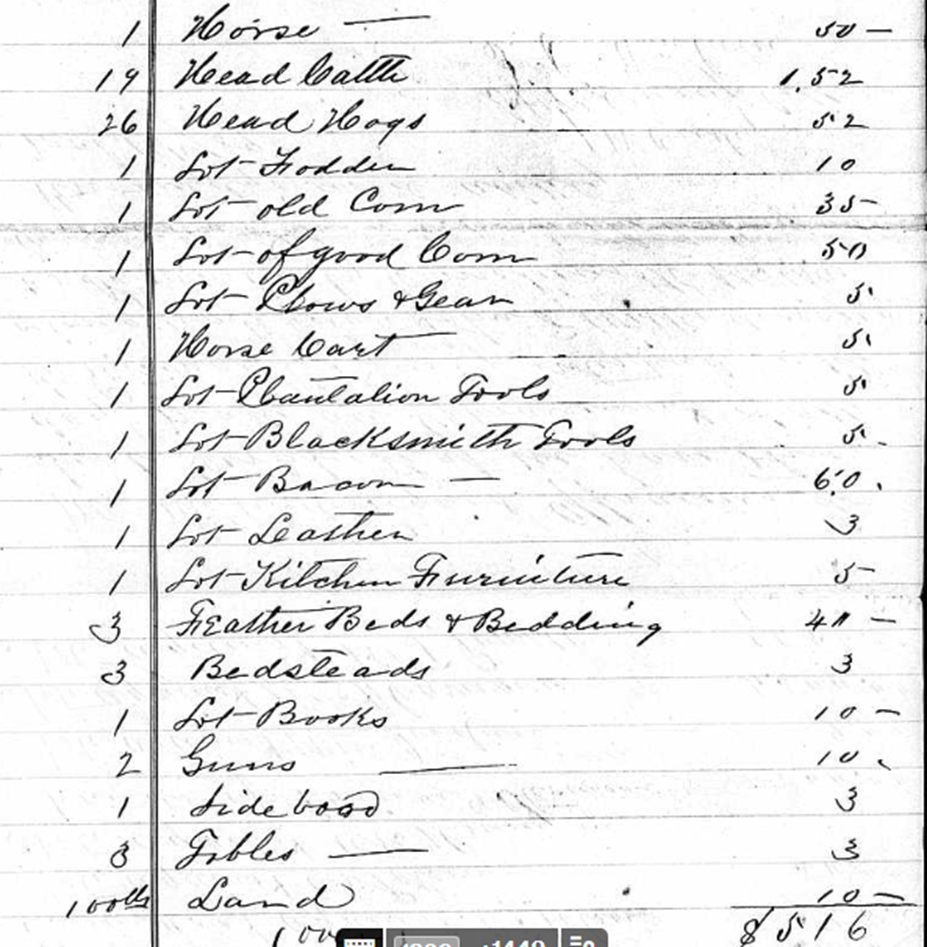 1 Horse — 50 —
19 Head Cattle 1.52
26 Head Hogs 52
1 Lot Fodder 10
1 Lot old Corn 35
1 Lot of good Corn 50
1 Lot Plows & Gear 5
1 Horse Cart 5
1 Lot Plantation Tools 5
1 Lot Blacksmith Tools 5
1 Lot Bacon — 60.
1 Lot Leather 3
1 Lot Kitchen Furniture 5
3 Feather Beds & Bedding 40 —
3 Bedsteads 3
1 Lot Books 10 —
2 Guns — 10
1 Side boad 3
3 Tables — 3
100lb Lard 10 —
$516